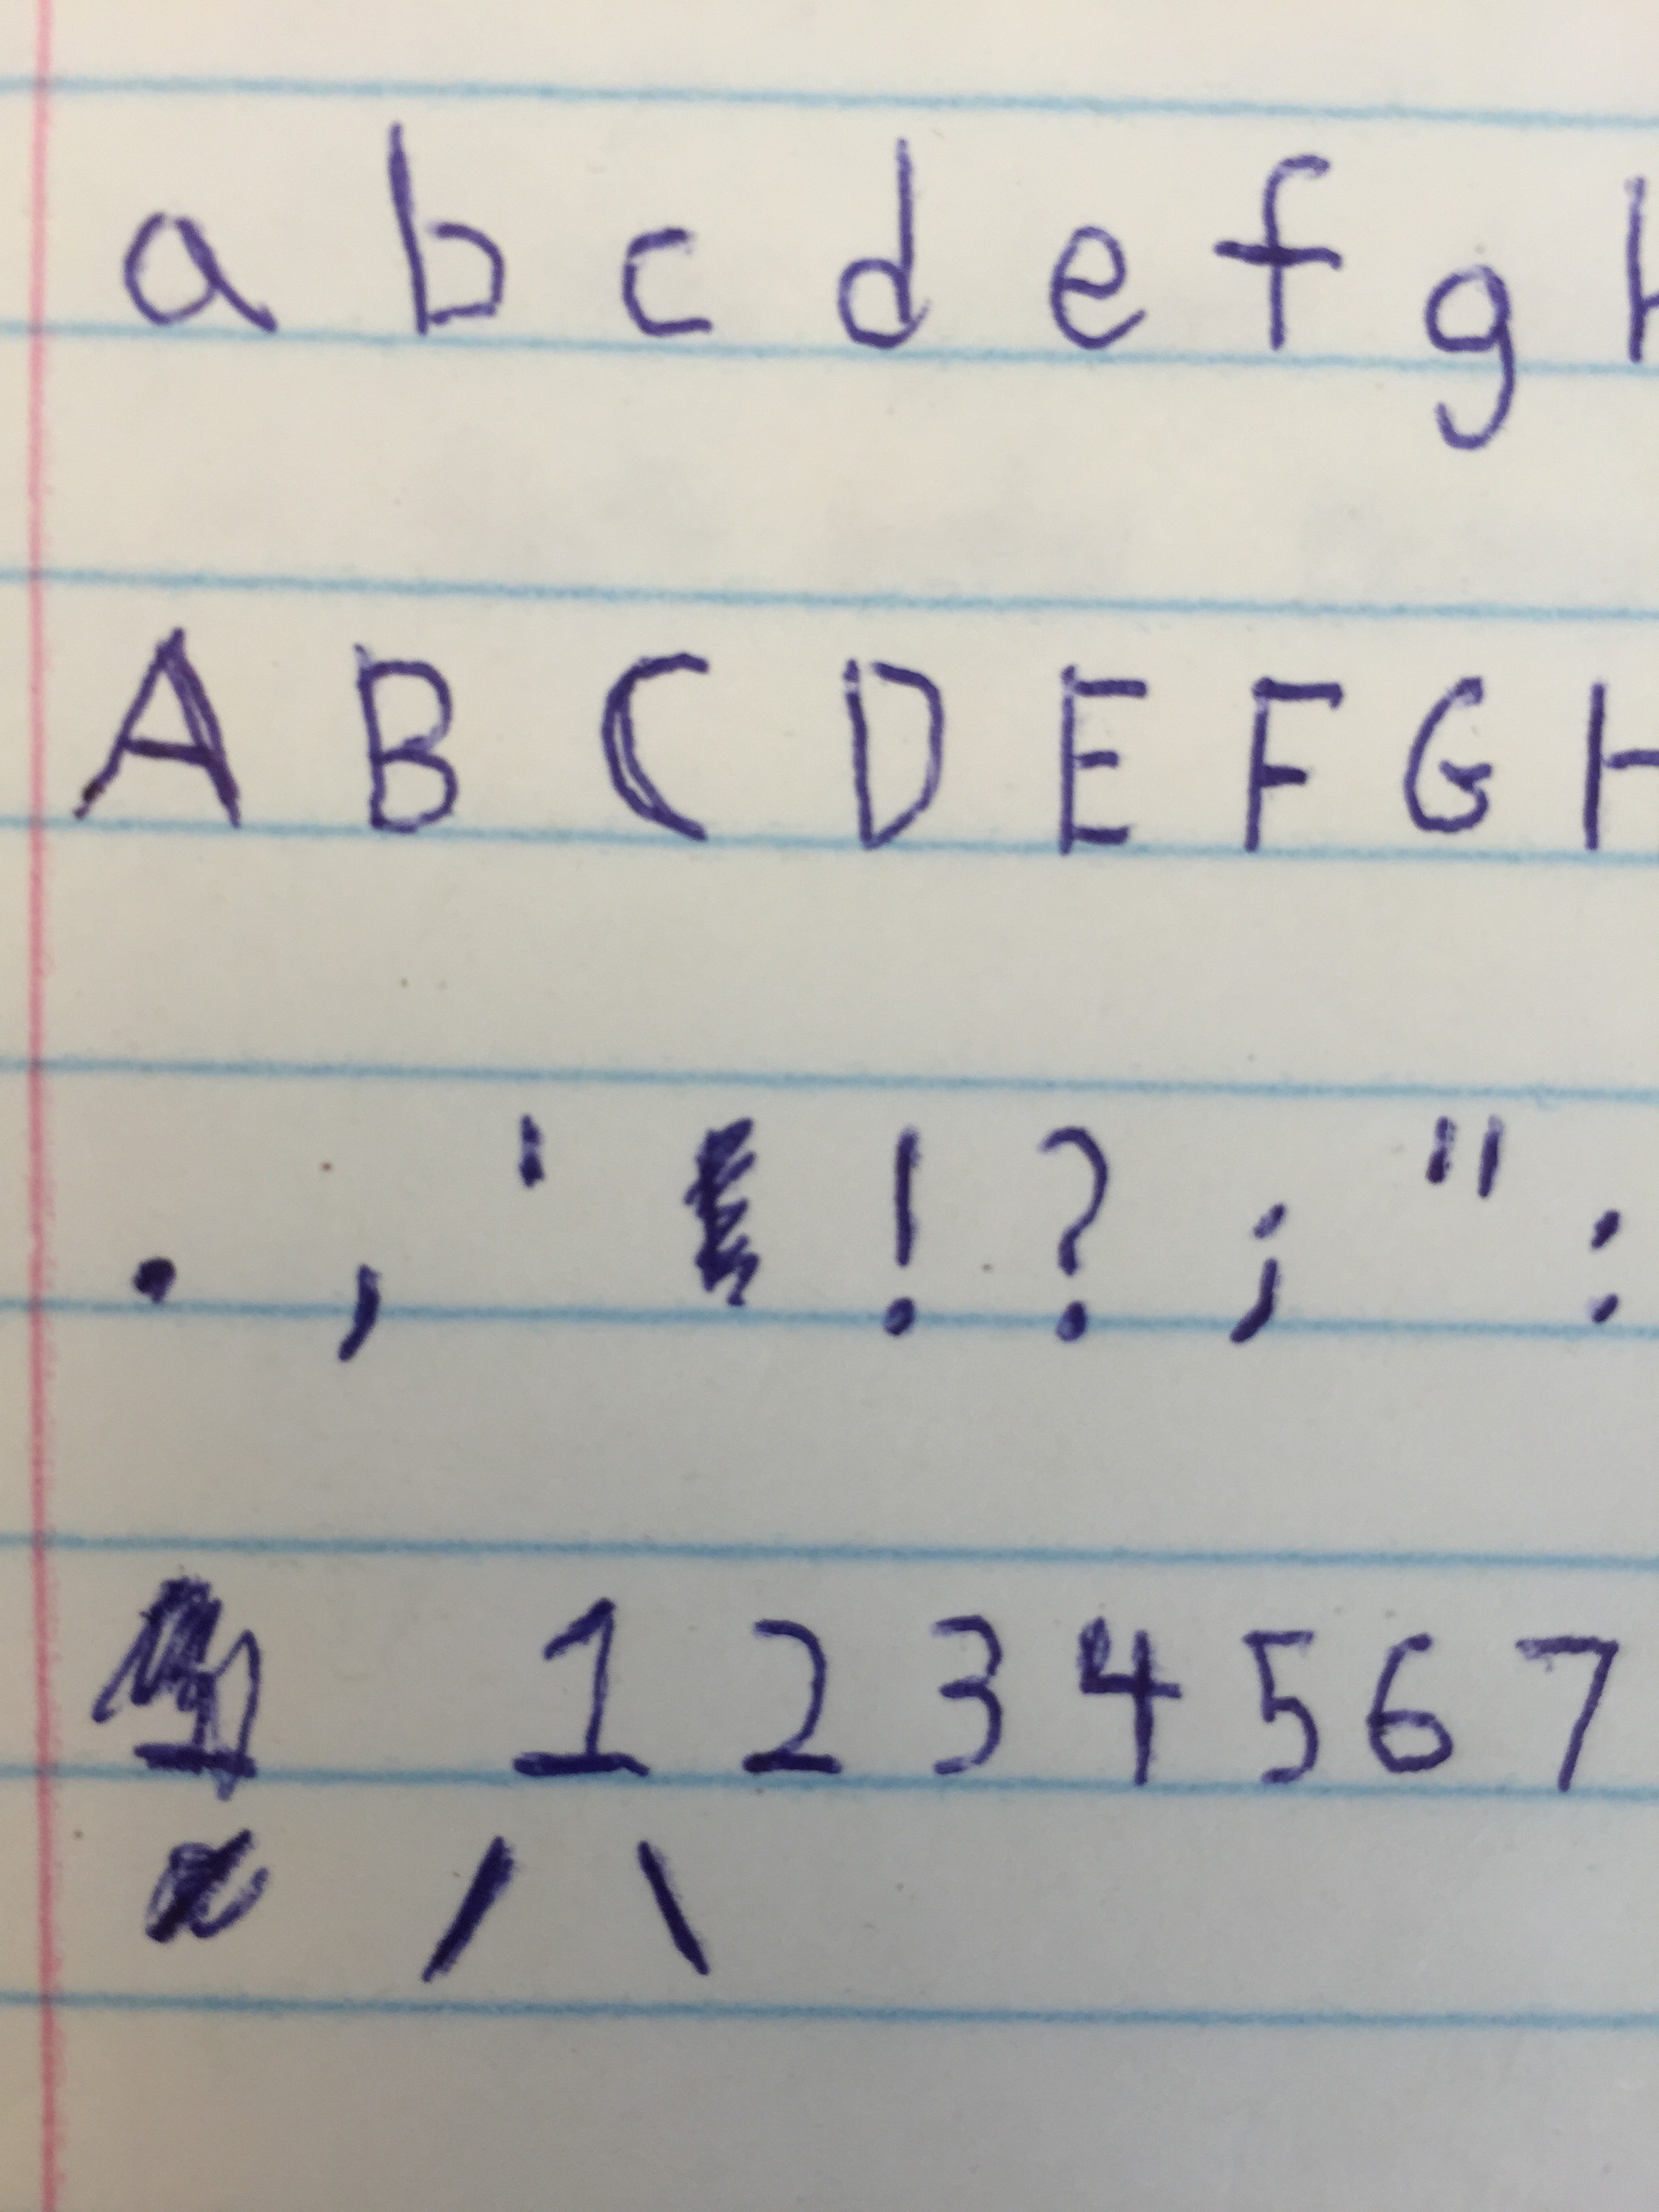 a b c d e f g h
A B C D E F G H
. , ' ! ? ; " :
1 2 3 4 5 6 7
/ \